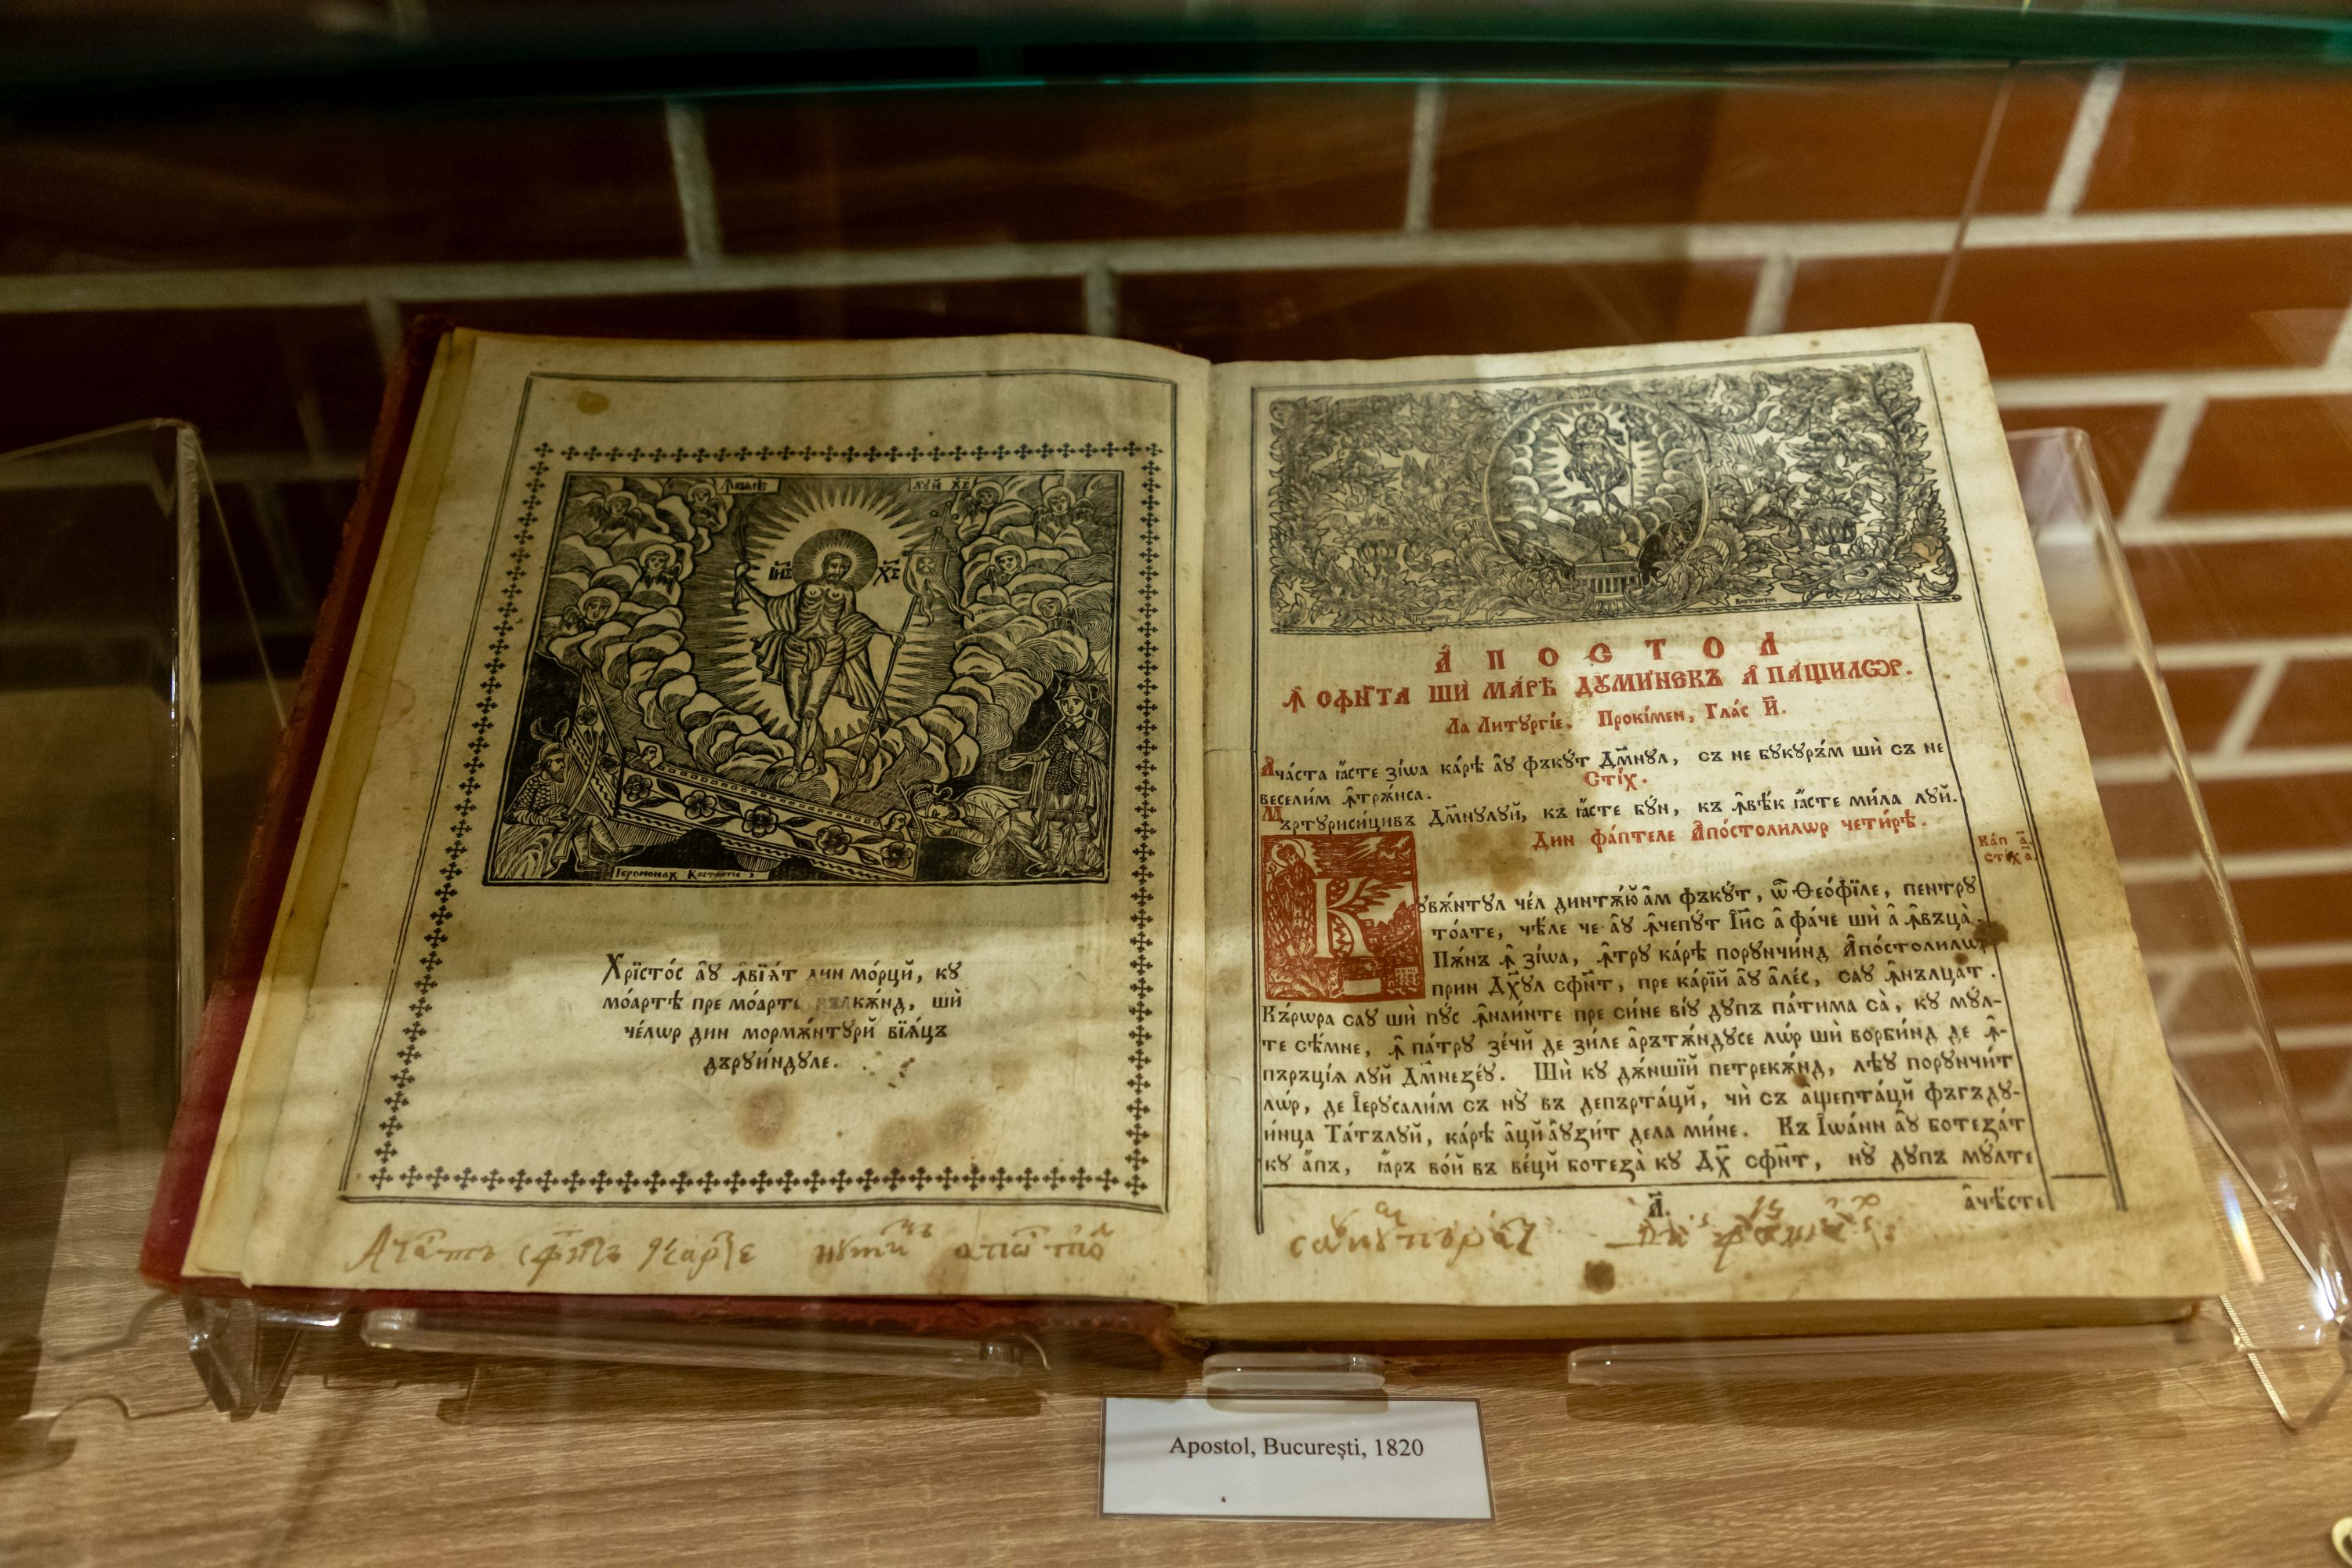 ЛꙋЙ ХЕ
І҆Н҃С Х҃С
Іеромонах Костантїе
Хрїсто́с а҆ꙋ ꙟ҆вїѧ́т дин мо́рций, кꙋ
мо́артѣ пре мо́арте кълкѫ́нд, шѝ
че́лѡр дин мормѫ́нтꙋрй вїѧ́цъ
дърꙋи́ндꙋле.
Костантїе
А҆ П О С Т О Л
Ꙟ҆ СФН҃ТА Шѝ МА́РѢ ДꙋМИ́НЕКЪ А҆ ПА́ЩИЛѠР.
Ла Литꙋргі́е. Прокі́мен, Гла́с И҃.
А҆ча́ста ꙗ҆́сте зі́ѡа ка́рѣ а҆ꙋ фъкꙋ́т Дм҃нꙋл, съ не бꙋкꙋръ́м шѝ съ не
Сті́х.
весели́м ꙟ҆трѫ́нса.
Мъртꙋриси́цивъ Дм҃нꙋлꙋй, къ ꙗ҆́сте бꙋ́н, къ ꙟ҆вѣ́к ꙗ҆́сте ми́ла лꙋй.
Дин фа́птеле А҆по́столилѡр чети́рѣ.
Кап а҃.
сті́х а҃.
Кꙋвѫ́нтꙋл че́л динтѫ́ю а҆м фъкꙋ́т, ѽ Ѳео́фїле, пентрꙋ
то́ате, чѣ́ле че а҆ꙋ ꙟ҆чепꙋ́т І҆и҃с а҆ фа́че шѝ а҆ ꙟ҆въцà.
Пѫ́нъ ꙟ҆ зі́ѡа, ꙟ҆трꙋ ка́рѣ порꙋнчи́нд А҆по́столилѡр
прин Дх҃ꙋл сфн҃т, пре ка́рїй а҆ꙋ а҆ле́с, саꙋ ꙟ҆нълцат.
Къ́рѡра саꙋ шѝ пꙋ́с ꙟ҆наи́нте пре си́не ві́ꙋ дꙋпъ па́тима сà, кꙋ мꙋ́л-
те сѣ́мне, ꙟ҆ па́трꙋ зе́чй де зи́ле а҆рътѫ́ндꙋсе лѡ́р шѝ ворби́нд де ꙟ҆-
пъръці́ѧ лꙋй Дм҃незе́ꙋ. Шѝ кꙋ дѫ́ншїй петрекѫ́нд, лѣꙋ порꙋнчи́т
лѡ́р, де І҆ерꙋсали́м съ нꙋ̀ въ депърта́цй, чѝ съ а҆щепта́цй фъгъдꙋ-
и́нца Та́тълꙋй, ка́рѣ а҆цй а҆ꙋзи́т дела ми́не. Къ І҆ѡа́нн а҆ꙋ ботеза́т
кꙋ а҆́пъ, ꙗ҆́ръ во́й въ ве́цй ботезà кꙋ Дх҃ сфн҃т, нꙋ̀ дꙋпъ мꙋ́лте
А҃.
а҆чѣ́сте
Apostol, București, 1820